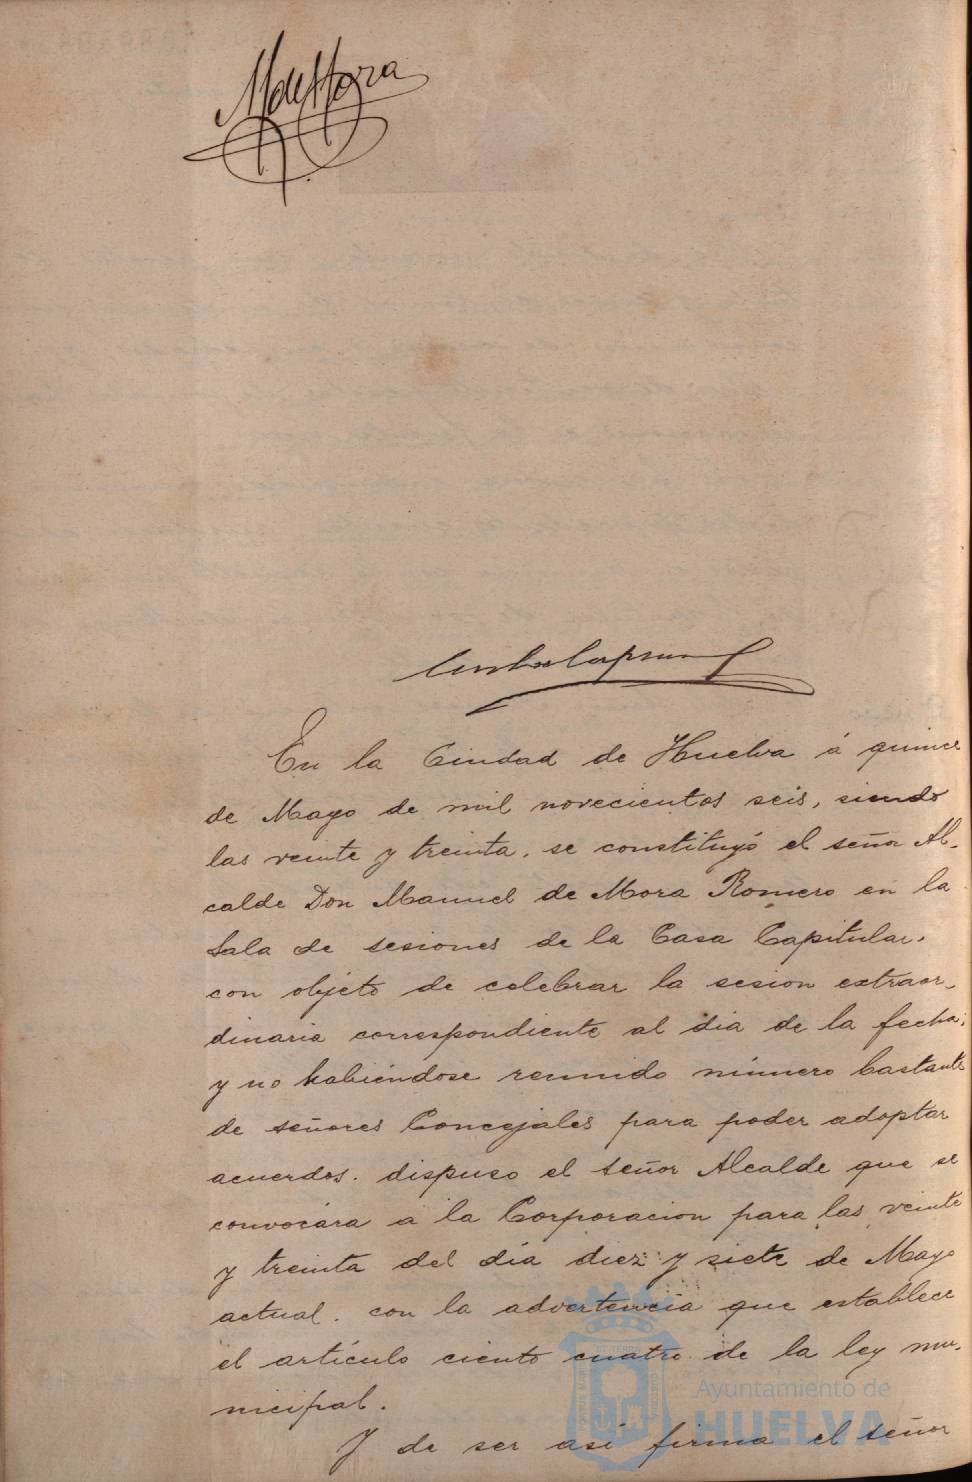 M de Mora
En la Ciudad de Huelva á quince
de Mayo de mil novecientos seis, siendo
las veinte y treinta, se constituyó el señor Al-
calde Don Manuel de Mora Romero en la
Sala de sesiones de la Casa Capitular,
con objéto de celebrar la sesion extraor-
dinaria correspondiente al dia de la fecha;
y no habiéndose reunido número bastante
de señores Concejales para poder adoptar
acuerdos, dispuso el señor Alcalde que se
convocára a la Corporacion para las veinte
y treinta del día diez y siete de Mayo
actual, con la advertencia que establece
el artículo ciento cuatro de la ley mu-
nicipal.
Y de ser así firma el señor
Ayuntamiento de
HUELVA